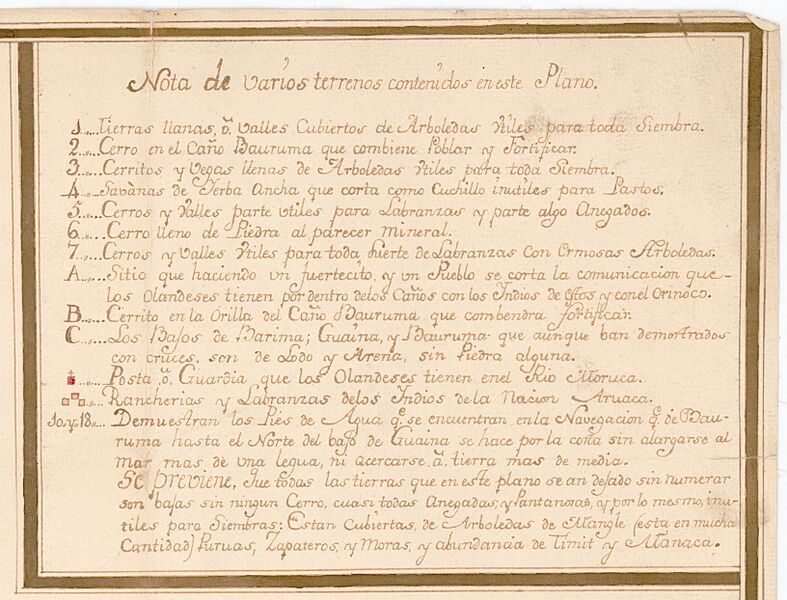 Nota de varios terrenos contenidos en este Plano.
1..,,...Tierras llanas, ô. valles Cubiertos de Arboledas vtiles para toda Siembra.
2..,,...Cerro en el Caño Bauruma que combiene Poblar y Fortificar.
3..,,...Cerritos y Vegas llenas de Arboledas vtiles para toda Siembra.
4..,,...Savanas de Ierba Ancha que corta como Cuchillo inutiles para Pastos.
5..,,...Cerros y Valles parte vtiles para Labranzas y parte algo Anegados.
6..,,...Cerro lleno de Piedra al parecer mineral.
7..,,...Cerros y Valles vtiles para toda suerte de Labranzas con Ermosas Arboledas.
A..,,...Sitio que haciendo vn fuertecito, y vn Pueblo se corta la comunicacion que-
los Olandeses tienen por dentro delos Caños con los Indios de estas y con el Orinoco.
B..,,...Cerrito en la Orilla del Caño Bauruma que combendra fortificar.
C..,,...Los Bajos de Barima; Guaina, y Bauruma que aunque ban demostrados
con cruces, son de Lodo y Arena, sin Piedra alguna.
..,,...Posta ô. Guardia que los Olandeses tienen en el Rio Moruca.
..,,...Rancherias y Labranzas delos Indios dela Nacion Aruaca.
10.,y.18..,,..Demuestran los Pies de Agua q.e se encuentran en la Navegacion q.e de Bau-
ruma hasta el Norte del bajo de Guaina se hace por la costa sin alargarse al
mar mas de una legua, ni acercarse â. tierra mas de media.
Se previene, que todas las tierras que en este plano se an dejado sin numerar
son bajas sin ningun Cerro, cuasi todas Anegadas, y Pantanosas, y por lo mesmo, inu-
tiles para Siembras; Estan Cubiertas, de Arboledas de Mangle (esta en mucha
Cantidad) Puruas, Zapateros, y Moras, y abundancia de Timit y Manaca.